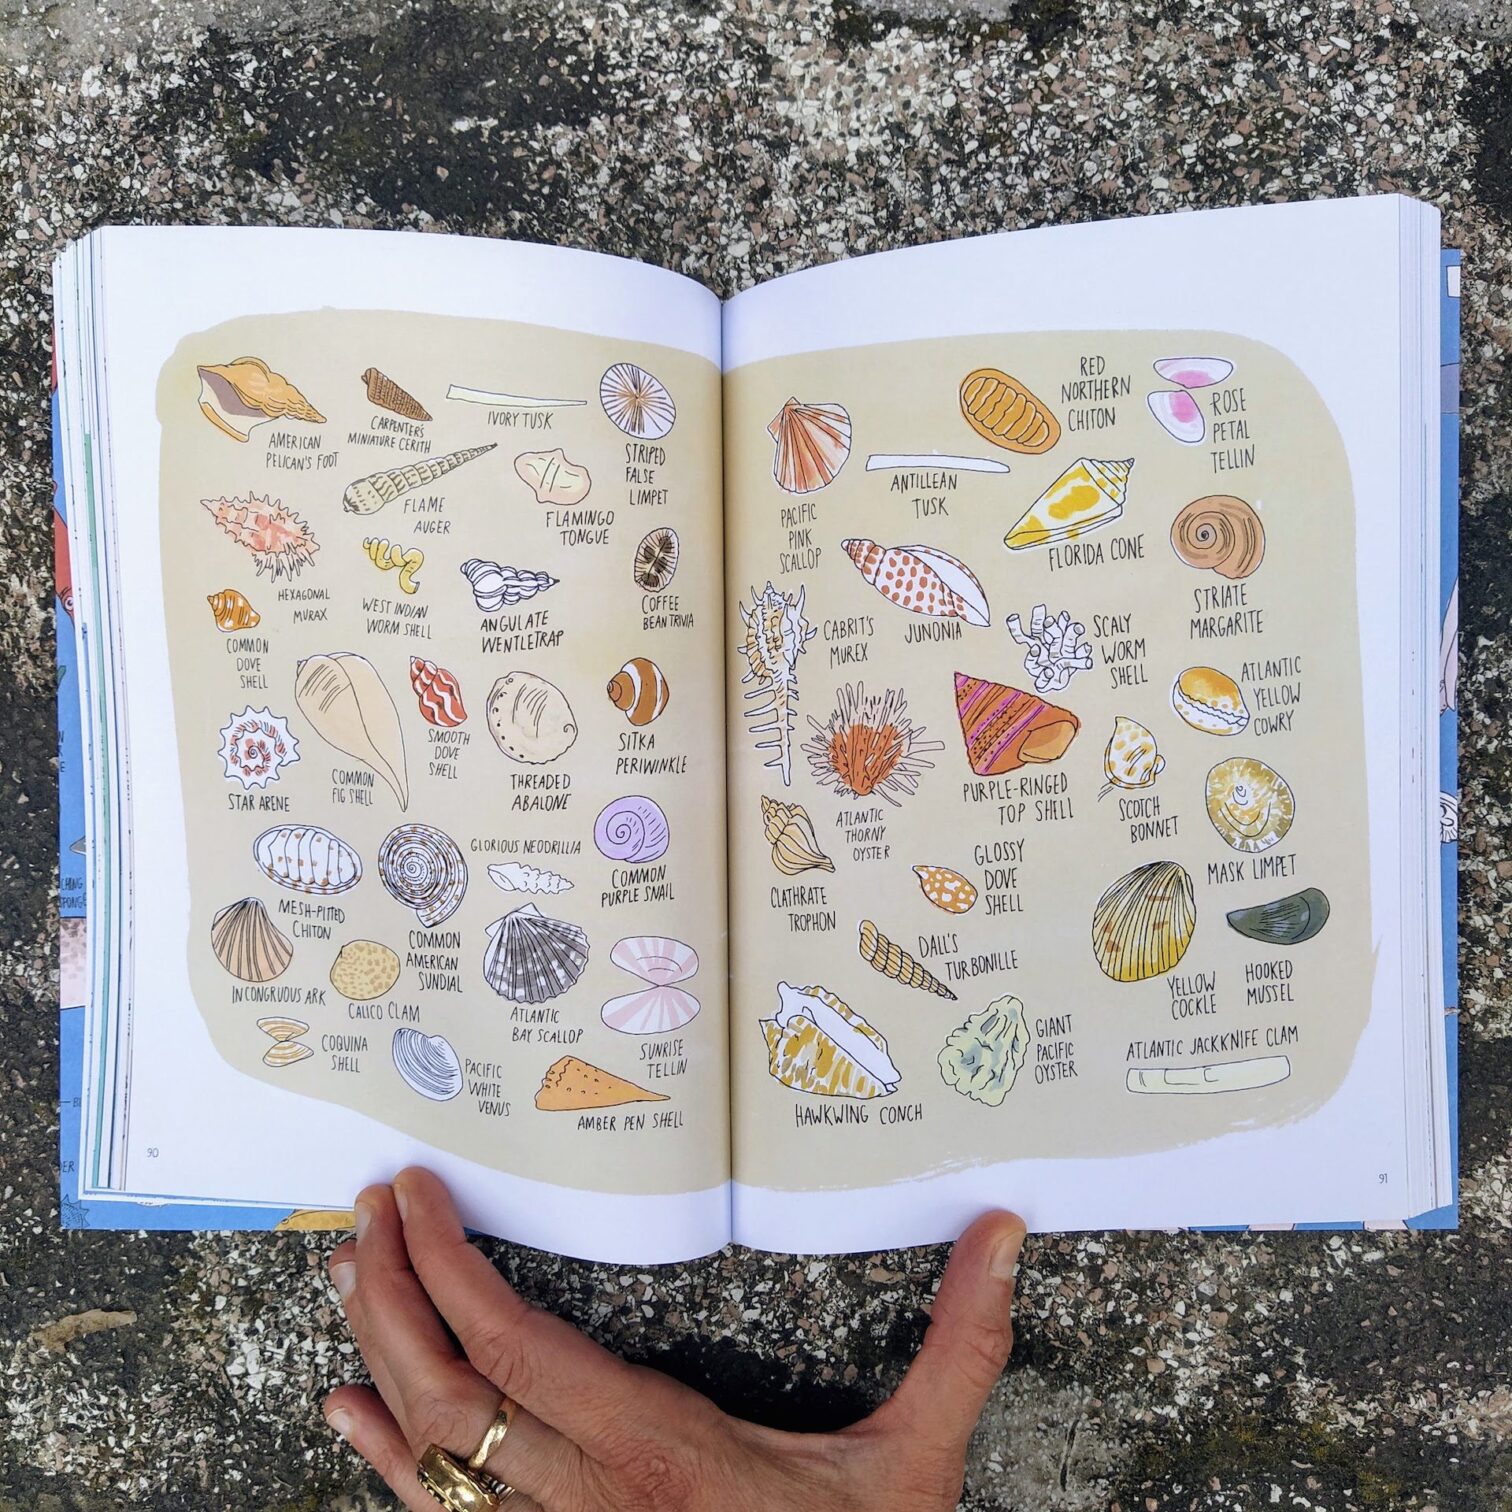 AMERICAN
PELICAN'S FOOT
CARPENTER'S
MINIATURE CERITH
IVORY TUSK
STRIPED
FALSE
LIMPET
FLAME
AUGER
FLAMINGO
TONGUE
HEXAGONAL
MURAX
WEST INDIAN
WORM SHELL
ANGULATE
WENTLETRAP
COFFEE
BEAN TRIVIA
COMMON
DOVE
SHELL
STAR ARENE
COMMON
FIG SHELL
SMOOTH
DOVE
SHELL
THREADED
ABALONE
SITKA
PERIWINKLE
MESH-PITTED
CHITON
COMMON
AMERICAN
SUNDIAL
GLORIOUS NEODRILLIA
COMMON
PURPLE SNAIL
INCONGRUOUS ARK
CALICO CLAM
ATLANTIC
BAY SCALLOP
SUNRISE
TELLIN
COQUINA
SHELL
PACIFIC
WHITE
VENUS
AMBER PEN SHELL
90
PACIFIC
PINK
SCALLOP
RED
NORTHERN
CHITON
ROSE
PETAL
TELLIN
ANTILLEAN
TUSK
FLORIDA CONE
STRIATE
MARGARITE
CABRIT'S
MUREX
JUNONIA
SCALY
WORM
SHELL
ATLANTIC
YELLOW
COWRY
ATLANTIC
THORNY
OYSTER
PURPLE-RINGED
TOP SHELL
SCOTCH
BONNET
MASK LIMPET
CLATHRATE
TROPHON
GLOSSY
DOVE
SHELL
DALL'S
TURBONILLE
YELLOW
COCKLE
HOOKED
MUSSEL
HAWKWING CONCH
GIANT
PACIFIC
OYSTER
ATLANTIC JACKKNIFE CLAM
91